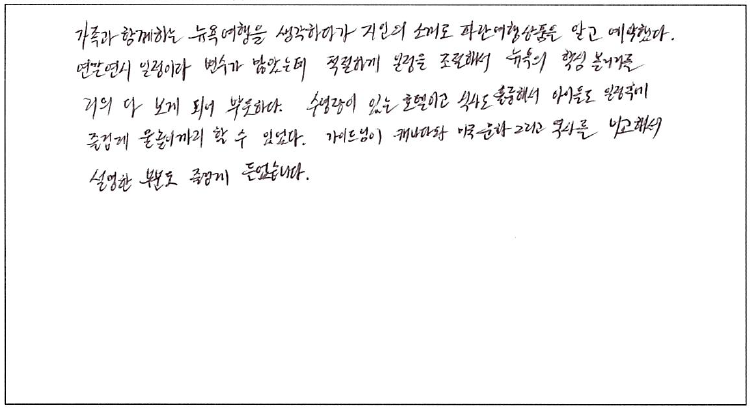 가족과 함께하는 뉴욕여행을 생각하다가 지인의 소개로 파란여행상품을 알고 예약했다.
연말연시 일정이라 변수가 많았는데 적절하게 일정을 조절해서 뉴욕의 핵심 볼거리를
거의 다 보게 되어 뿌듯하다. 수영장이 있는 호텔이고 식사도 훌륭해서 아이들도
즐겁게 물놀이까지 할 수 있었다. 가이드님이 캐나다와 미국문화 그리고 역사를 비교해서
설명한 부분도 즐겁게 들었습니다.